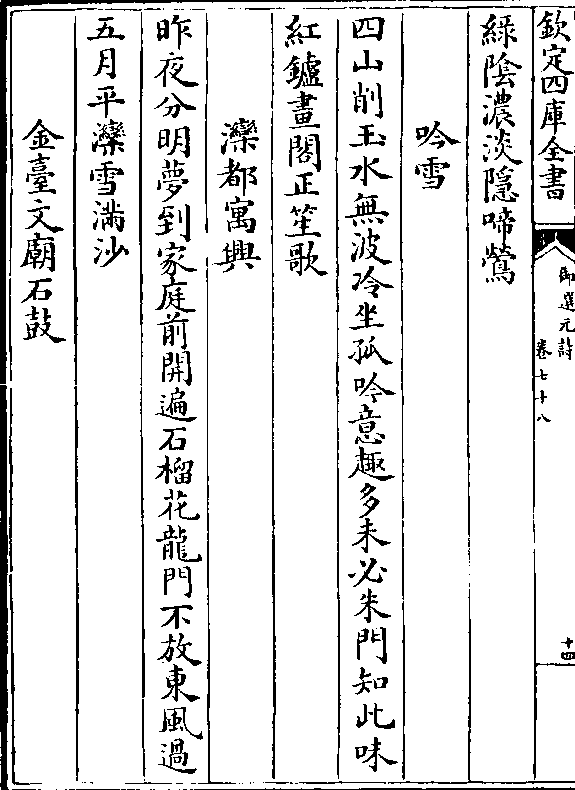 欽定四庫全書
御選元詩
卷七十八
十四
綠陰濃淡隱啼鶯
吟雪
四山削玉水無波冷坐孤吟意趣多未必朱門知此味
紅鑪畫閣正笙歌
灤都寓興
昨夜分明夢到家庭前開遍石榴花龍門不放東風過
五月平灤雪滿沙
金臺文廟石鼓